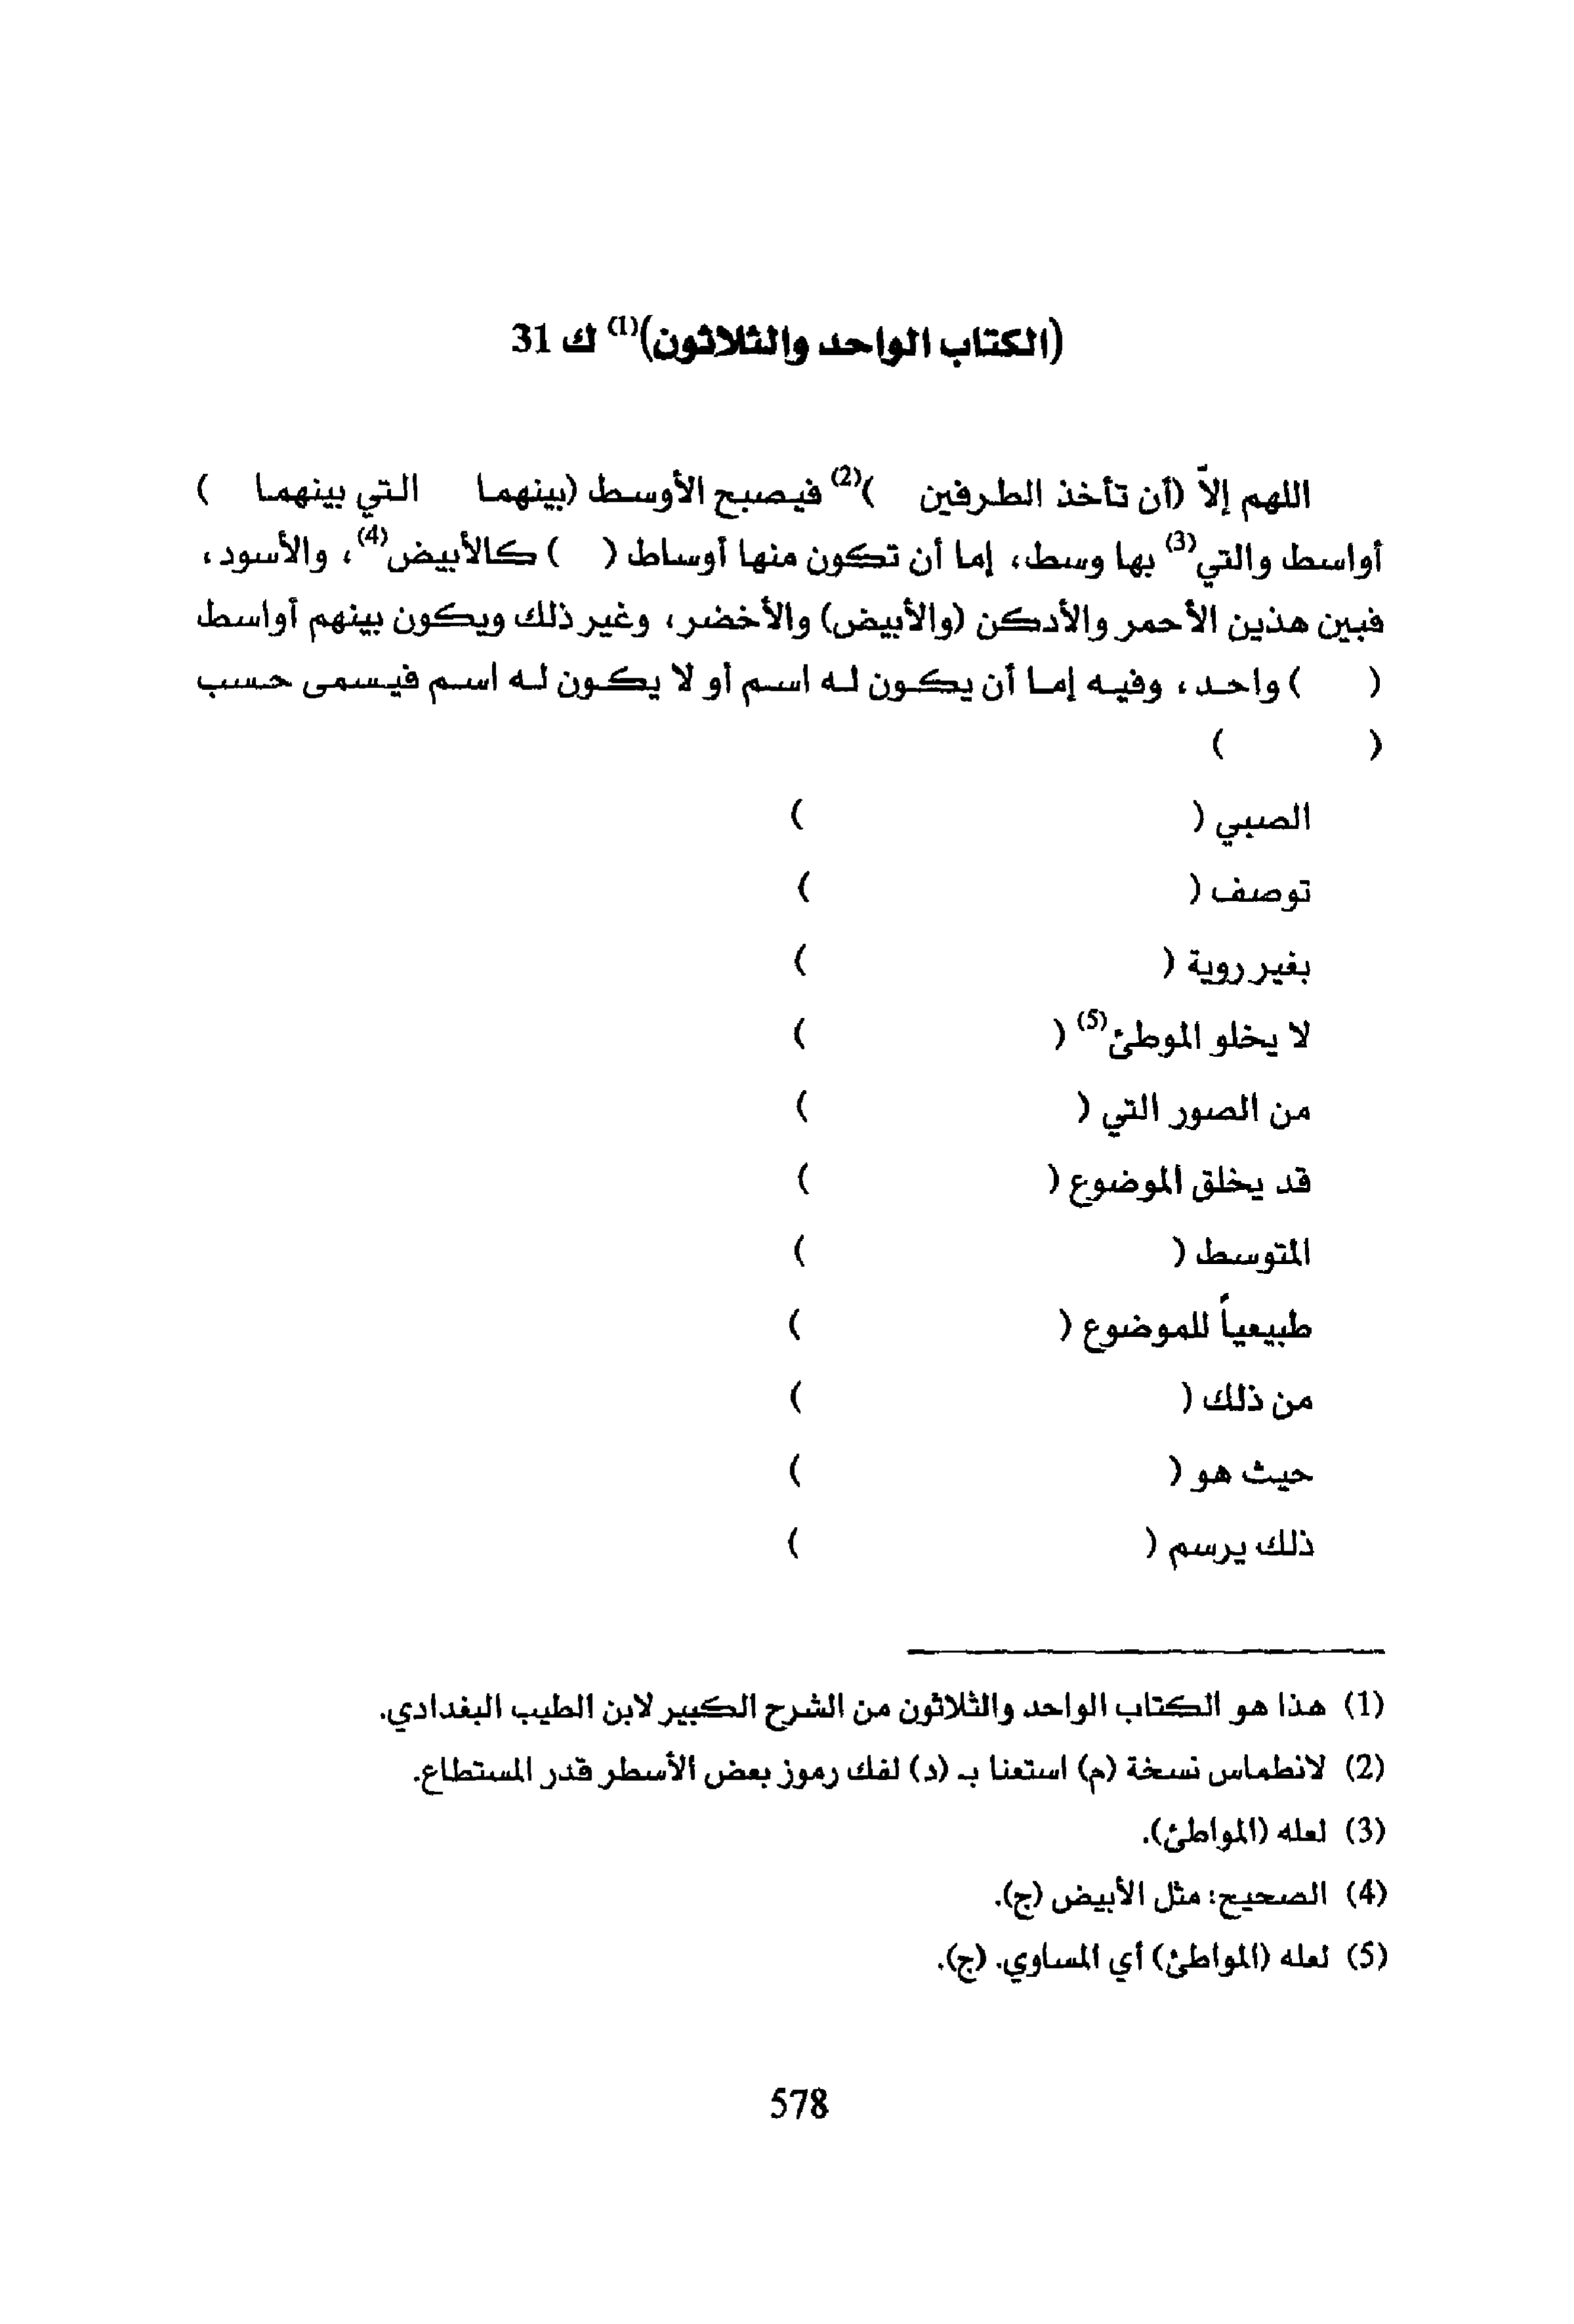 (الكتاب الواحد والثلاثون)(1) ك 31
اللهم إلاّ (أن تأخذ الطرفين )(2) فيصبح الأوسط (بينهما التي بينهما )
أواسط والتي(3) بها وسط، إما أن تكون منها أوساط ( ) كالأبيض(4)، والأسود،
فبين هذين الأحمر والأدكن (والأبيض) والأخضر، وغير ذلك ويكون بينهم أواسط
( ) واحد، وفيه إما أن يكون له اسم أو لا يكون له اسم فيسمى حسب
( )
الصبي ( )
توصف ( )
بغير روية ( )
لا يخلو الموطئ(5) ( )
من الصور التي ( )
قد يخلق الموضوع ( )
المتوسط ( )
طبيعياً للموضوع ( )
من ذلك ( )
حيث هو ( )
ذلك يرسم ( )
(1) هذا هو الكتاب الواحد والثلاثون من الشرح الكبير لابن الطيب البغدادي.
(2) لانطماس نسخة (م) استعنا بـ (د) لفك رموز بعض الأسطر قدر المستطاع.
(3) لعله (المواطئ).
(4) الصحيح: مثل الأبيض (ج).
(5) لعله (المواطئ) أي المساوي. (ج).
578